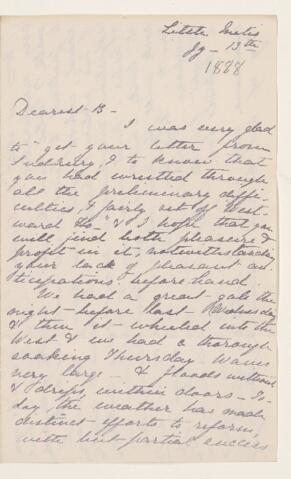 Little Metis
Jy - 13th
1888
Dearest B -
I was very glad
to get your letter from
Sudbury, & to know that
you had wrestled through
all the preliminary diffi-
culties, & fairly set off "West-
ward Ho" - & I hope that you
will find both pleasure &
profit in it, notwithstanding
your lack of pleasant an-
ticipations beforehand.
We had a great gale the
night before last - Wednesday
& then it wheeled into the
West & we had a thorough
soaking Thursday. Waves
very large - & floods without
& drips, within doors - To-
day, the weather has made
distinct efforts to reform,
with but partial success